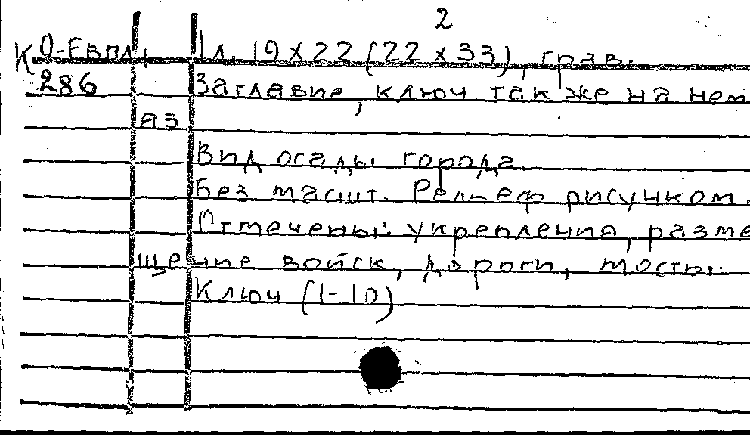 2
К О-Евр. 1 л. 19 х 22 (22 х 33), грав.
286 Заглавие, ключ так же на нем
яз
Вид осады города.
Без масшт. Рельеф рисунком.
Отмечены: укрепления, разме
щение войск, дороги, мосты.
Ключ (1-10)